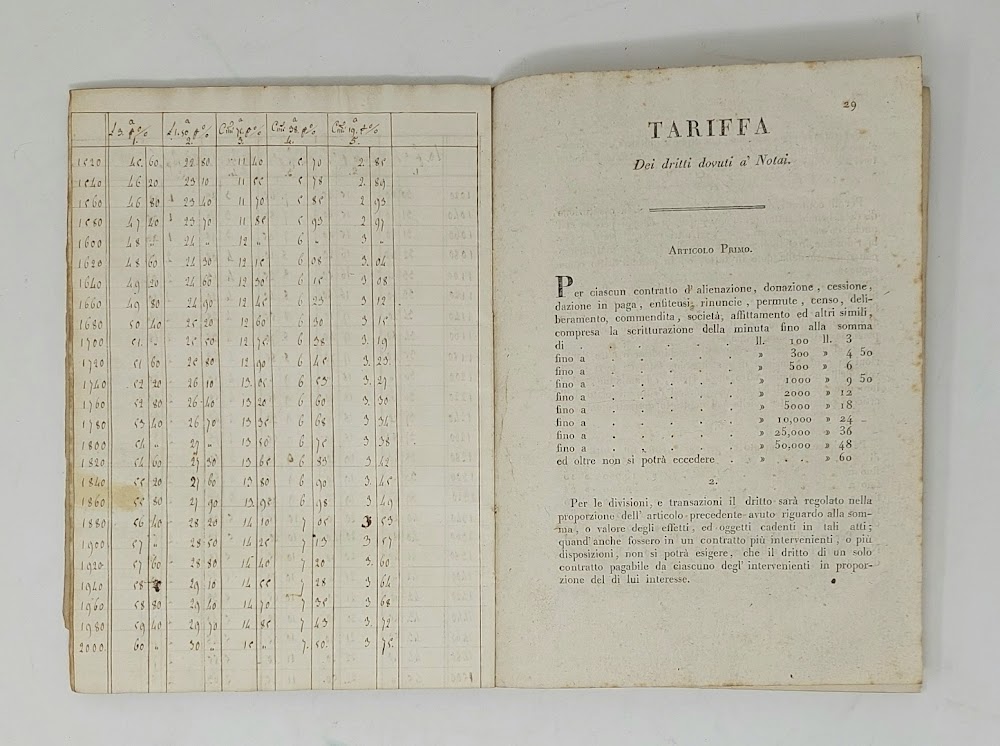 L 3. p % L 1.50 p % 76 p % 38. p % 19. p %
1. 2. 3. 4. 5.
1520 45. 60. 22 80 11 40 5 70 2. 85
1540 46 20 23 10 11 55 5 78 2. 89
1560 46 80 23 40 11 70 5 85 2 93
1580 47 40 23 70 11 85 5 93 2 97
1600 48 „ 24 „ 12 „ 6 „ 3 „
1620 48 60 24 30 12 15 6 08 3. 04
1640 49 20 24 60 12 30 6 15 3 08
1660 49 80 24 90 12 45 6 23 3 12
1680 50 40 25 20 12 60 6 30 3 15
1700 51 „ 25 50 12 75 6 38 3. 19
1720 51 60 25 80 12 90 6 45 3. 23
1740 52 20 26 10 13 05 6 53 3. 27
1760 52 80 26 40 13 20 6 60 3. 30
1780 53 40 26 70 13 35 6 68 3 34
1800 54 „ 27 „ 13 50 6 75 3 38
1820 54 60 27 30 13 65 6 83 3 42
1840 55 20 27 60 13 80 6 90 3. 45
1860 55 80 27 90 13 95 6 98 3 49
1880 56 40 28 20 14 10 7 05 3 53
1900 57 „ 28 50 14 25 7 13 3 57
1920 57 60 28 80 14 40 7 20 3. 60
1940 58 29 10 14 55 7 28 3 64
1960 58 80 29 40 14 70 7 35 3 68
1980 59 40 29 70 14 85 7 43 3. 72
2000 60 „ 30 „ 15 „ 7. 50. 3 75.
29
TARIFFA
Dei dritti dovuti a' Notai.
Articolo Primo.
Per ciascun contratto d'alienazione, donazione, cessione,
dazione in paga, enfiteusi, rinuncie, permute, censo, deli-
beramento, commendita, società, affittamento ed altri simili,
compresa la scritturazione della minuta fino alla somma
di . . . . . . ll. 100 ll. 3
fino a . . . . . » 300 » 4 50
fino a . . . . . » 500 » 6
fino a . . . . . » 1000 » 9 50
fino a . . . . . » 2000 » 12
fino a . . . . . » 5000 » 18
fino a . . . . . » 10,000 » 24
fino a . . . . . » 25,000 » 36
fino a . . . . . » 50,000 » 48
ed oltre non si potrà eccedere . » . . . » 60
2.
Per le divisioni, e transazioni il dritto sarà regolato nella
proporzione dell'articolo precedente avuto riguardo alla som-
ma, o valore degli effetti, ed oggetti cadenti in tali atti;
quand'anche fossero in un contratto più intervenienti, o più
disposizioni, non si potrà esigere, che il dritto di un solo
contratto pagabile da ciascuno degl'intervenienti in propor-
zione del di lui interesse.